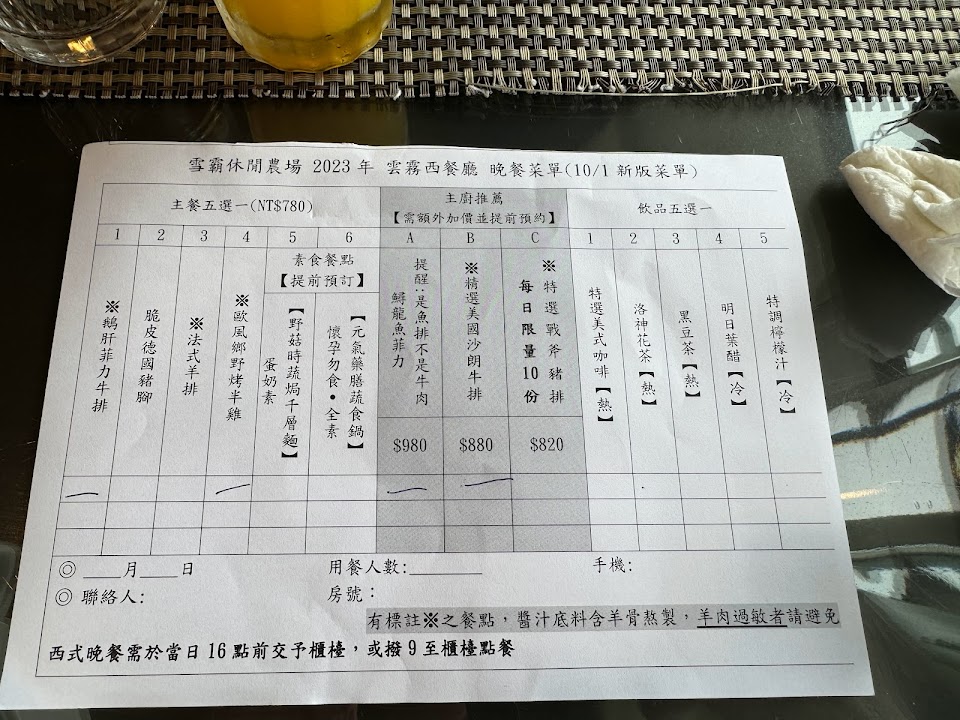 雪霸休閒農場 2023年 雲霧西餐廳 晚餐菜單(10/1新版菜單)
主餐五選一(NT$780)
主廚推薦
【需額外加價並提前預約】
飲品五選一
1 2 3 4 5 6 A B C 1 2 3 4 5
素食餐點
【提前預訂】
※鵝肝菲力牛排
脆皮德國豬腳
※法式羊排
※歐風鄉野烤半雞
【野菇時蔬焗千層麵】
蛋奶素
【元氣藥膳蔬食鍋】
懷孕勿食•全素
提醒:是魚排不是牛肉
鱘龍魚菲力
※精選美國沙朗牛排
※特選戰斧豬排
每日限量10份
特選美式咖啡【熱】
洛神花茶【熱】
黑豆茶【熱】
明日葉醋【冷】
特調檸檬汁【冷】
$980 $880 $820
◎ ____月____日 用餐人數:________ 手機:
◎ 聯絡人: 房號:
有標註※之餐點,醬汁底料含羊骨熬製,羊肉過敏者請避免
西式晚餐需於當日16點前交予櫃檯,或撥9至櫃檯點餐